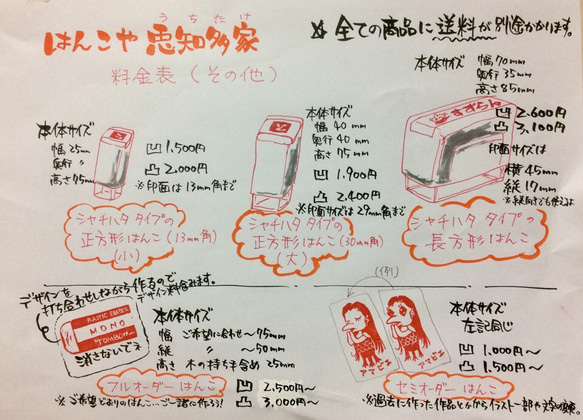 うちたけ
はんこや 恵知多家
※全ての商品に送料が別途かかります。
料金表(その他)
本体サイズ
幅 25mm
奥行 〃
高さ 75mm
凹 1,500円
凸 2,000円
※印面は13mm角まで
シャチハタタイプの
正方形はんこ(13mm角)
(小)
本体サイズ
幅 40mm
奥行 40mm
高さ 75mm
凹 1,900円
凸 2,400円
※印面サイズは29mm角まで
シャチハタ タイプの
正方形はんこ(30mm角)
(大)
本体サイズ
幅 70mm
奥行 35mm
高さ 85mm
すずらん
凹 2,600円
凸 3,100円
印面サイズは
横 45mm
縦 17mm
※縦向きでも使えます
シャチハタ タイプの
長方形はんこ
デザインを
打ち合わせしながら作るので
デザイン料含みます。
PLASTIC ERASER
MONO
TOMBOW
消さないでネ
本体サイズ
幅 ご希望に合わせ〜75mm
縦 〃 〜50mm
高さ 木の持ち手含め 25mm
フルオーダー はんこ
凹 2,500円〜
凸 3,000円〜
※ご希望どおりのはんこ…ご一緒に作ろう!
(例)
アマビエ
アマビエ
本体サイズ
左記同じ
凹 1,000円〜
凸 1,500〜
セミオーダー はんこ
※過去に作った作品とかからイラスト一部や